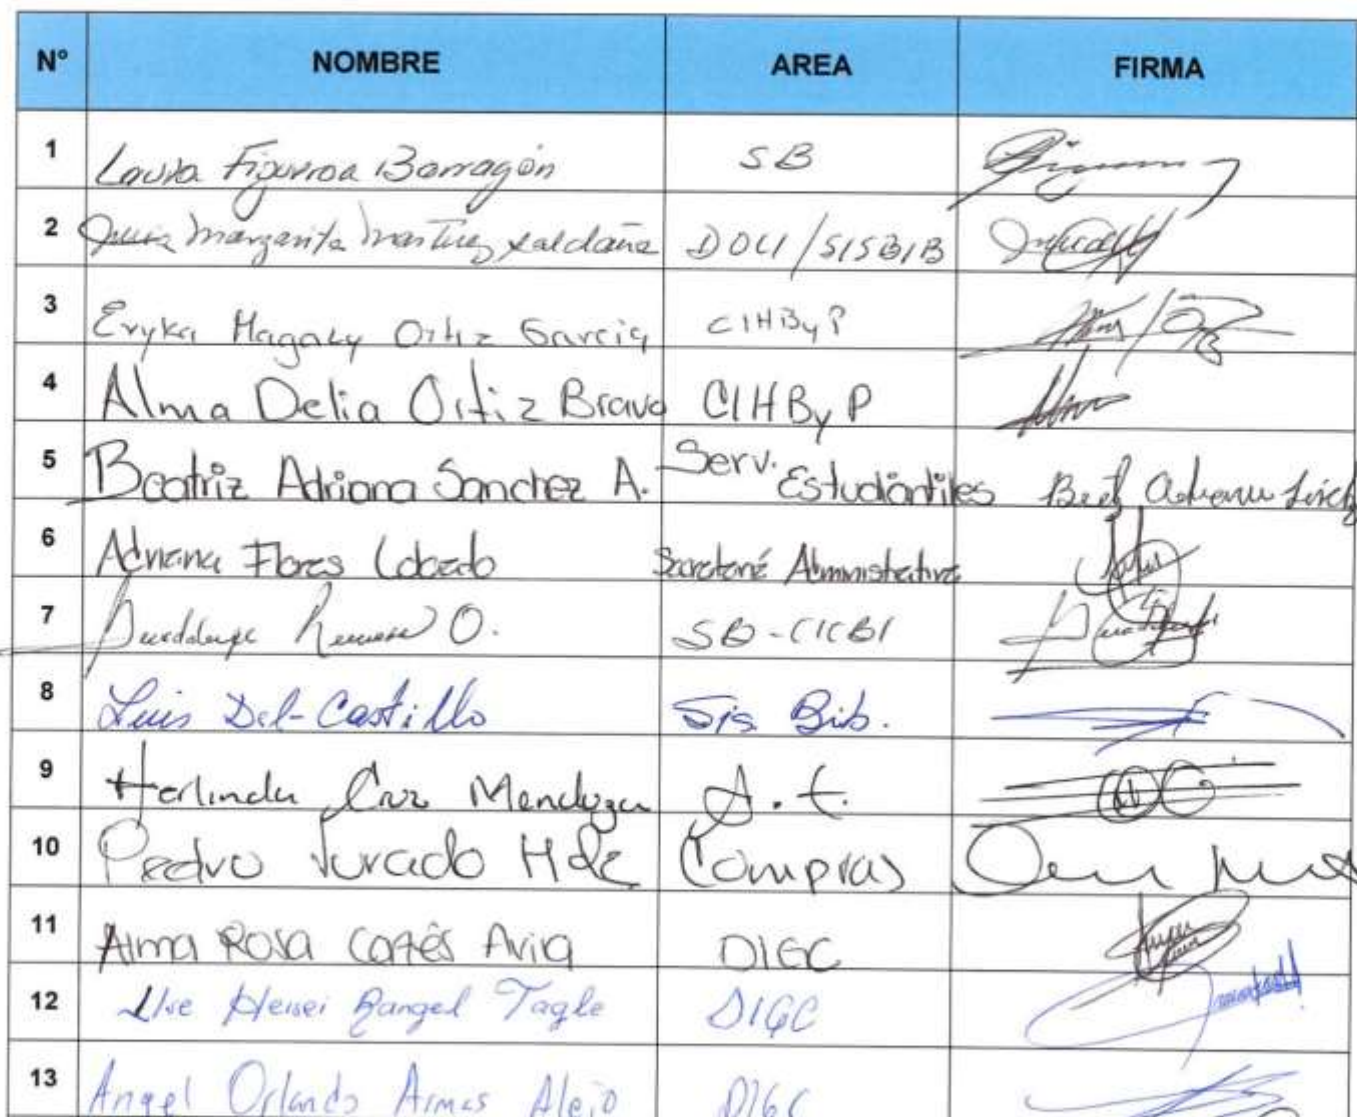 N° NOMBRE AREA FIRMA
1 Laura Figueroa Barragón SB
2 Margarita Martinez Saldaña DOCI/SISBIB
3 Eryka Magaly Ortiz Garcia CIHByP
4 Alma Delia Ortiz Bravo CIHByP
5 Beatriz Adriana Sanchez A. Serv. Estudiantiles
6 Adriana Flores Administrativa
7 Guadalupe O. SB-CICBI
8 Luis Del-Castillo Sis. Bib.
9 Herlinda Cruz Mendoza A.t.
10 Pedro Jurado Hdz Compras
11 Alma Rosa Cortés Avia DIGC
12 Rangel Tagle DIGC
13 Angel Orlando Armas Alejo DIGC